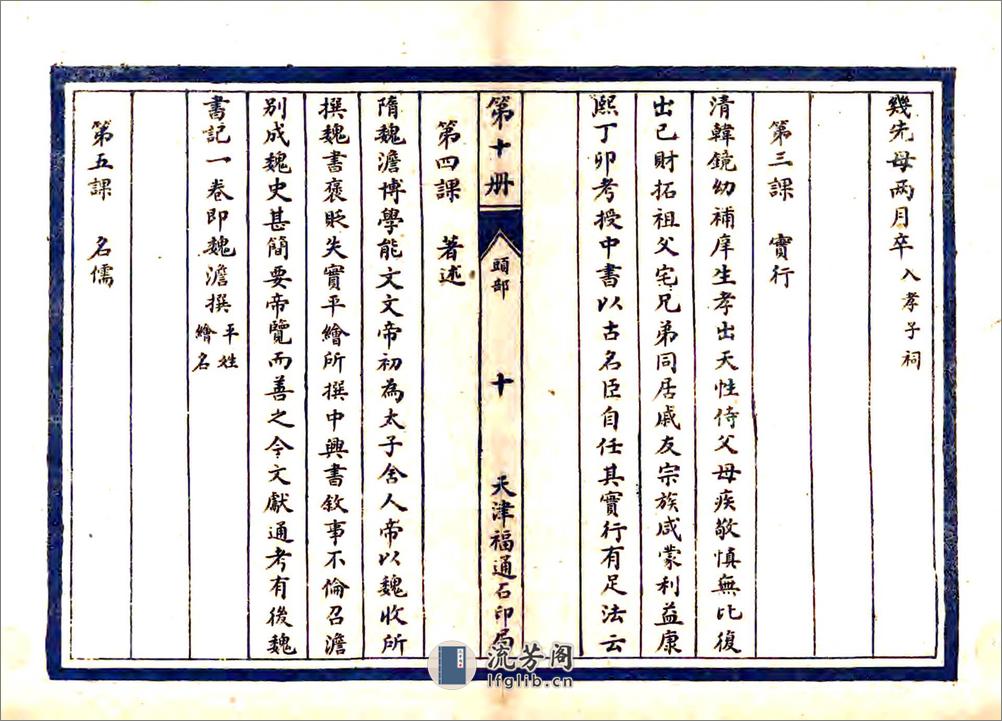 幾先母兩月卒入孝子祠
第三課 實行
清韓鏡幼補庠生孝出天性侍父母疾敬慎無比復
出己財拓祖父宅兄弟同居戚友宗族咸蒙利益康
熙丁卯考授中書以古名臣自任其實行有足法云
第十册 頭部 十 天津福通石印局
第四課 著述
隋魏澹博學能文文帝初為太子舍人帝以魏收所
撰魏書褒貶失實平繪所撰中興書敘事不倫召澹
別成魏史甚簡要帝覽而善之今文獻通考有後魏
書記一卷即魏澹撰平姓繪名
第五課 名儒
流芳阁
lfglib.cn